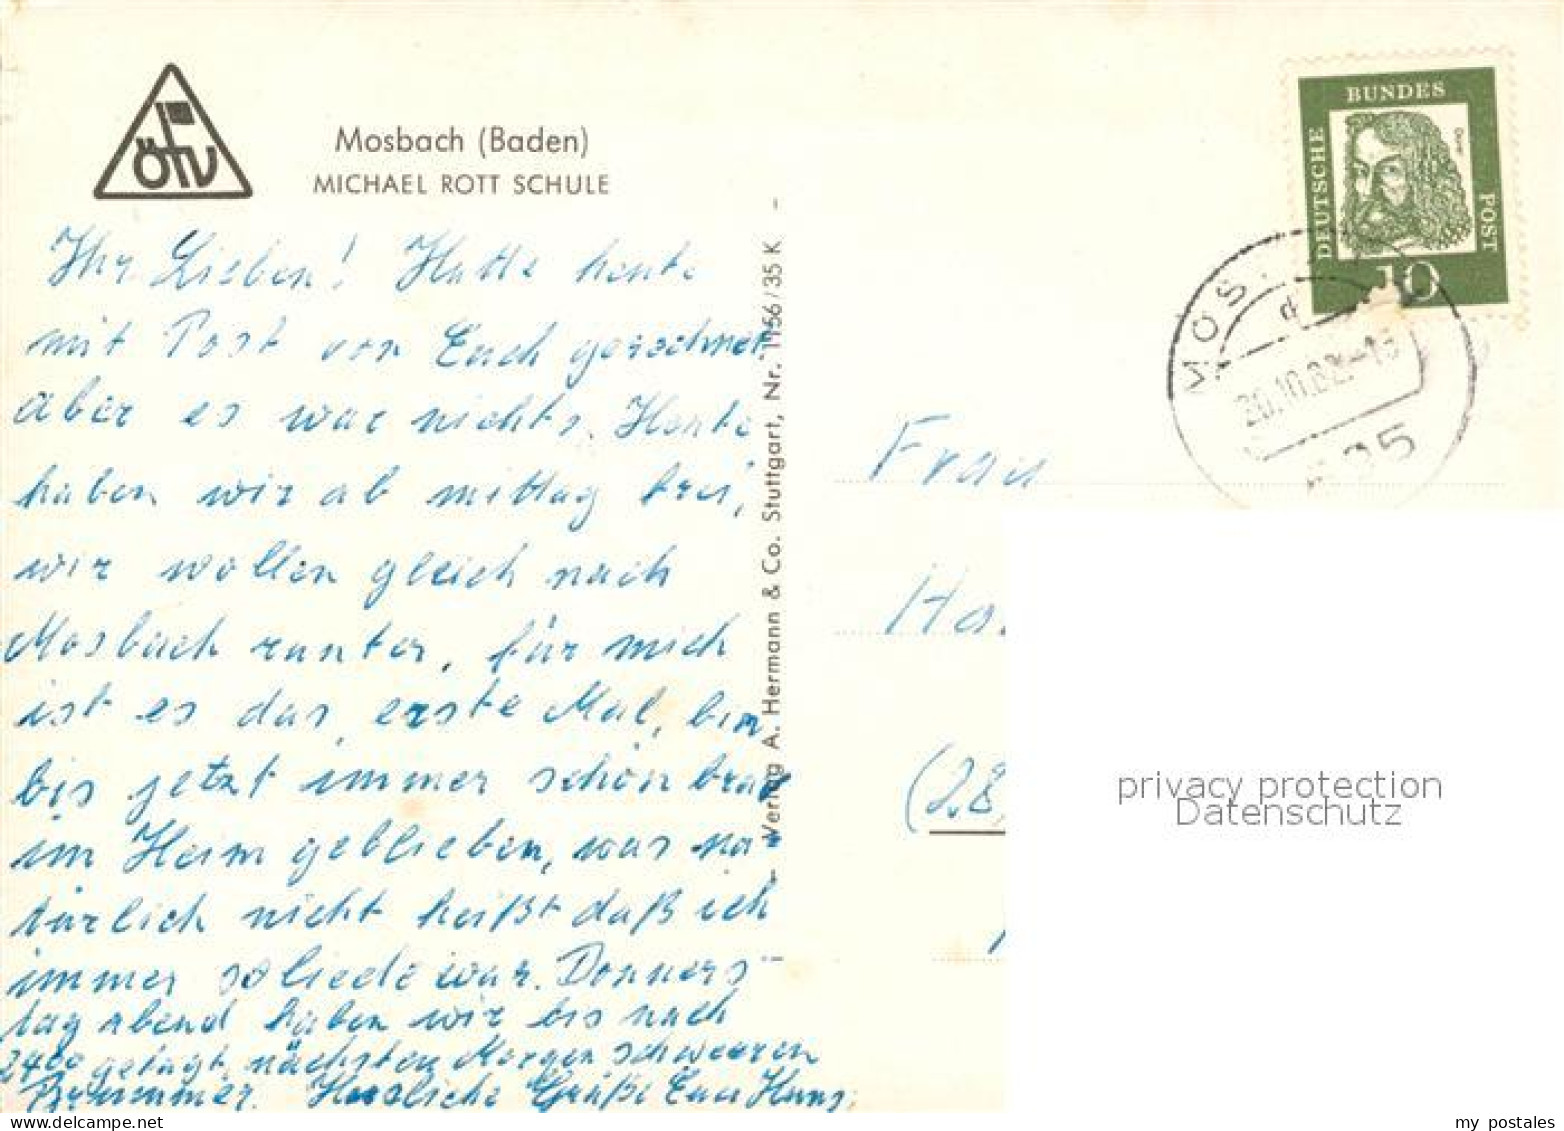 ÖTV
Mosbach (Baden)
MICHAEL ROTT SCHULE
Ihr Lieben! Hatte heute
mit Post von Euch gerechnet
aber es war nichts. Heute
haben wir ab mittag frei,
wir wollen gleich nach
Mosbach runter, für mich
ist es das erste Mal, bin
bis jetzt immer schön brav
im Heim geblieben, was na-
türlich nicht heißt daß ich
immer solide war. Donners-
tag abend haben wir bis nach
2400 getagt, nächsten Morgen schweeren
Brummer. Herzliche Grüße Euer Hans.
Verlag A. Hermann & Co. Stuttgart, Nr. 1156/35 K
DEUTSCHE
BUNDES
POST
Dürer
10
MOS
d
20.10.62.-15
Frau
Ha
(28
privacy protection
Datenschutz
my postales